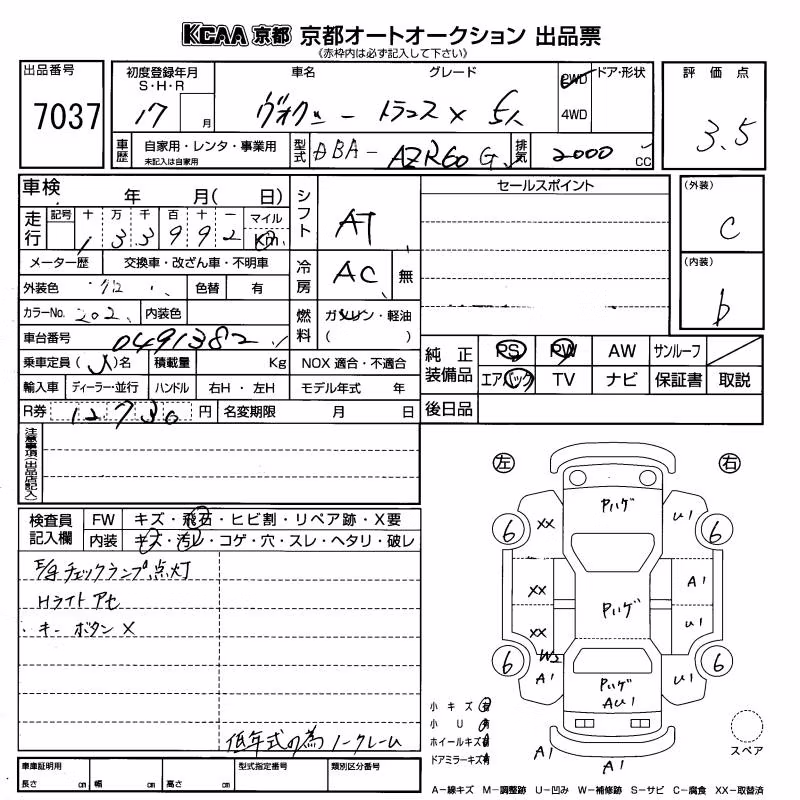 KCAA 京都 京都オートオークション 出品票
《赤枠内は必ず記入して下さい》
出品番号
7037
初度登録年月
S・H・R
17 月
車名 グレード
ヴォクシー トランスX 5人
2WD
4WD
ドア・形状
評価点
3.5
車歴
自家用・レンタ・事業用
未記入は自家用
型式
DBA-AZR60G
排気
2000 CC
車検 年 月( 日)
走行
記号 十 万 千 百 十 一 マイル
1 3 3 9 9 2 Km
シフト
AT
セールスポイント
(外装)
C
(内装)
b
メーター歴 交換車・改ざん車・不明車
冷房
AC 無
外装色 色替 有
カラーNo. 202 内装色
燃料
ガソリン・軽油
( )
車台番号 0491382
乗車定員( )名 積載量 Kg NOX 適合・不適合
輸入車 ディーラー・並行 ハンドル 右H・左H モデル年式 年
R券 12730 円 名変期限 月 日
純正装備品
PS PW AW サンルーフ
エアバック TV ナビ 保証書 取説
後日品
注意事項(出品店記入)
検査員記入欄
FW キズ・飛石・ヒビ割・リペア跡・X要
内装 キズ・汚レ・コゲ・穴・スレ・ヘタリ・破レ
E/gチェックランプ点灯
Hライトアセ
キーボタンX
低年式の為ノークレーム
左 右
Pハゲ
XX U1
6 6
XX A1
Pハゲ
XX U1
W2
6 6
A1 Pハゲ U1
AU1
A1 A1
小キズ有
小U有
ホイールキズ有
ドアミラーキズ有
スペア
車庫証明用
長さ cm 幅 cm 高さ cm
型式指定番号 類別区分番号
A－線キズ M－調整跡 U－凹み W－補修跡 S－サビ C－腐食 XX－取替済